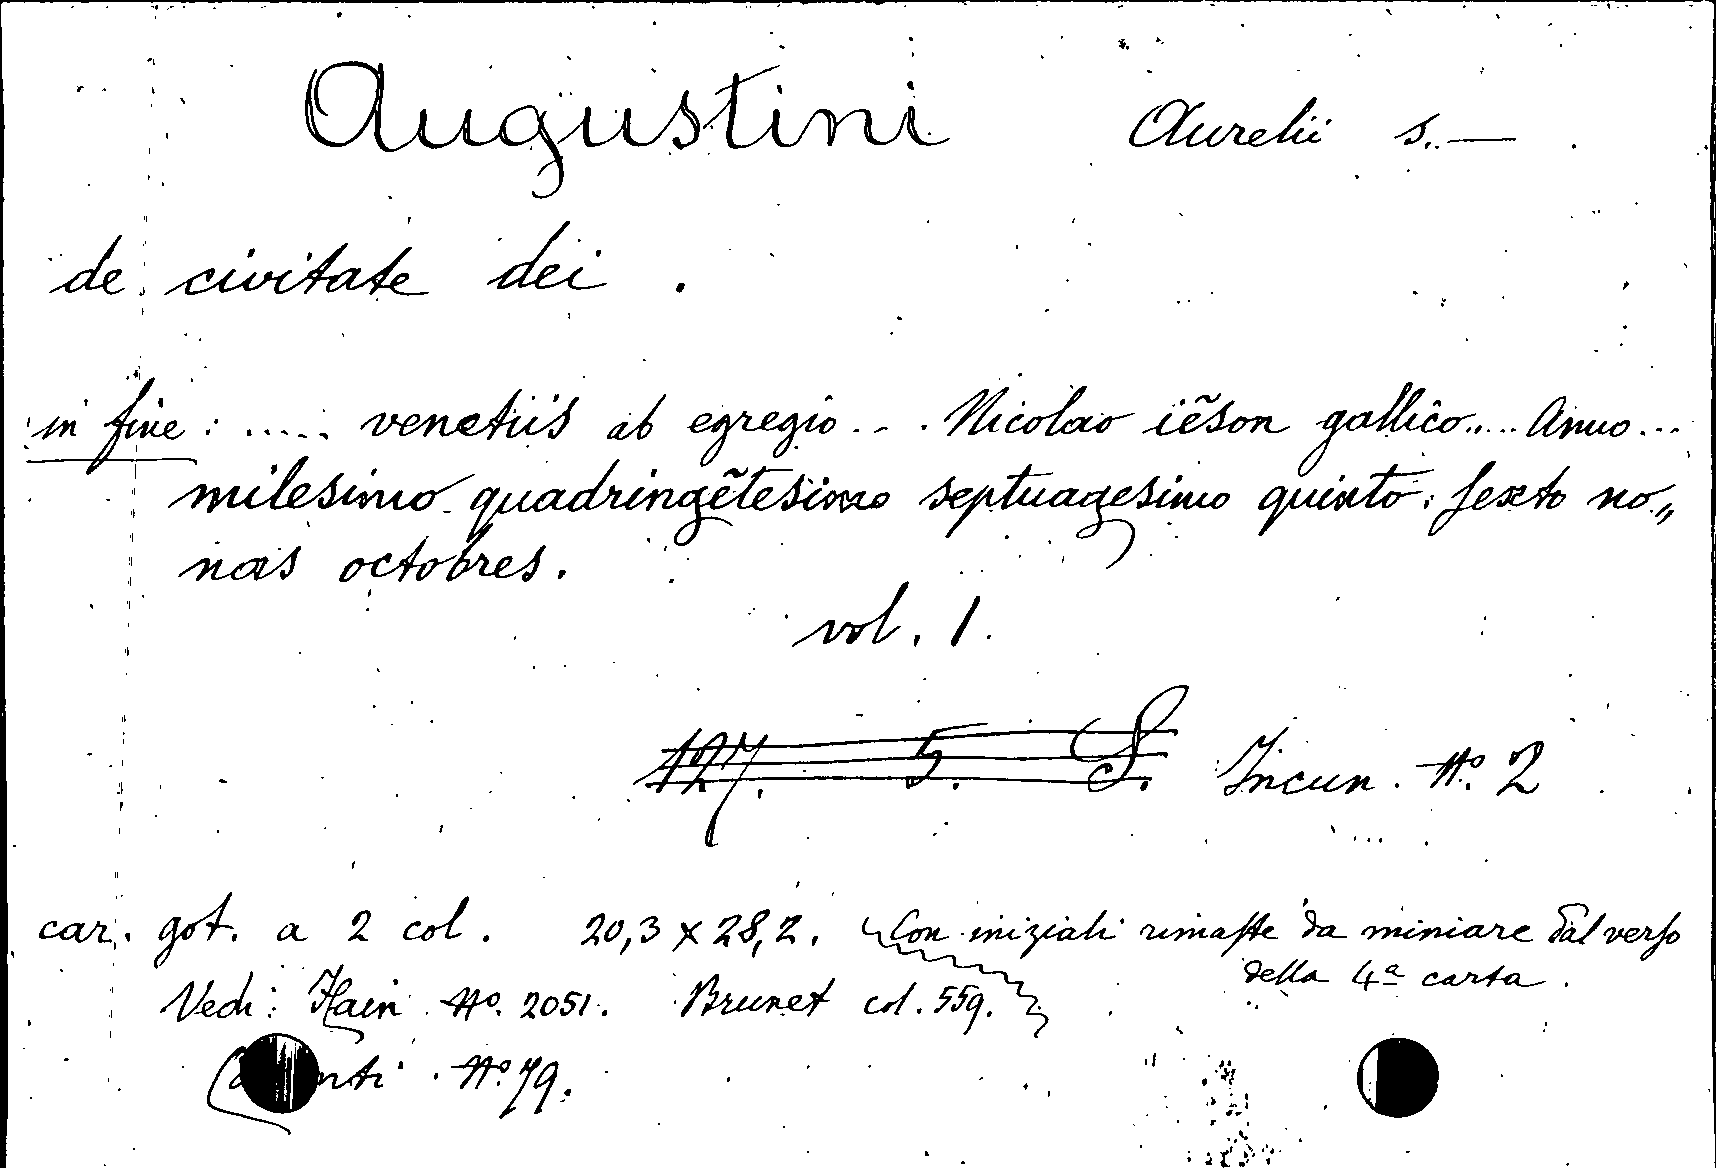 Augustini Aurelii s. —
de civitate dei .
in fine : ..... venetiis ab egregio ... Nicolao iẽson gallico..... Anno ...
milesimo quadringẽtesimo septuagesimo quinto : sexto no„
nas octobres.
vol. 1.
127. 5. S. Incun. No. 2
car. got. a 2 col. 20,3 x 28,2. Con iniziali rimaste da miniare dal verso
della 4ª carta .
Vedi: Hain No. 2051. Brunet col. 559.
No 79.